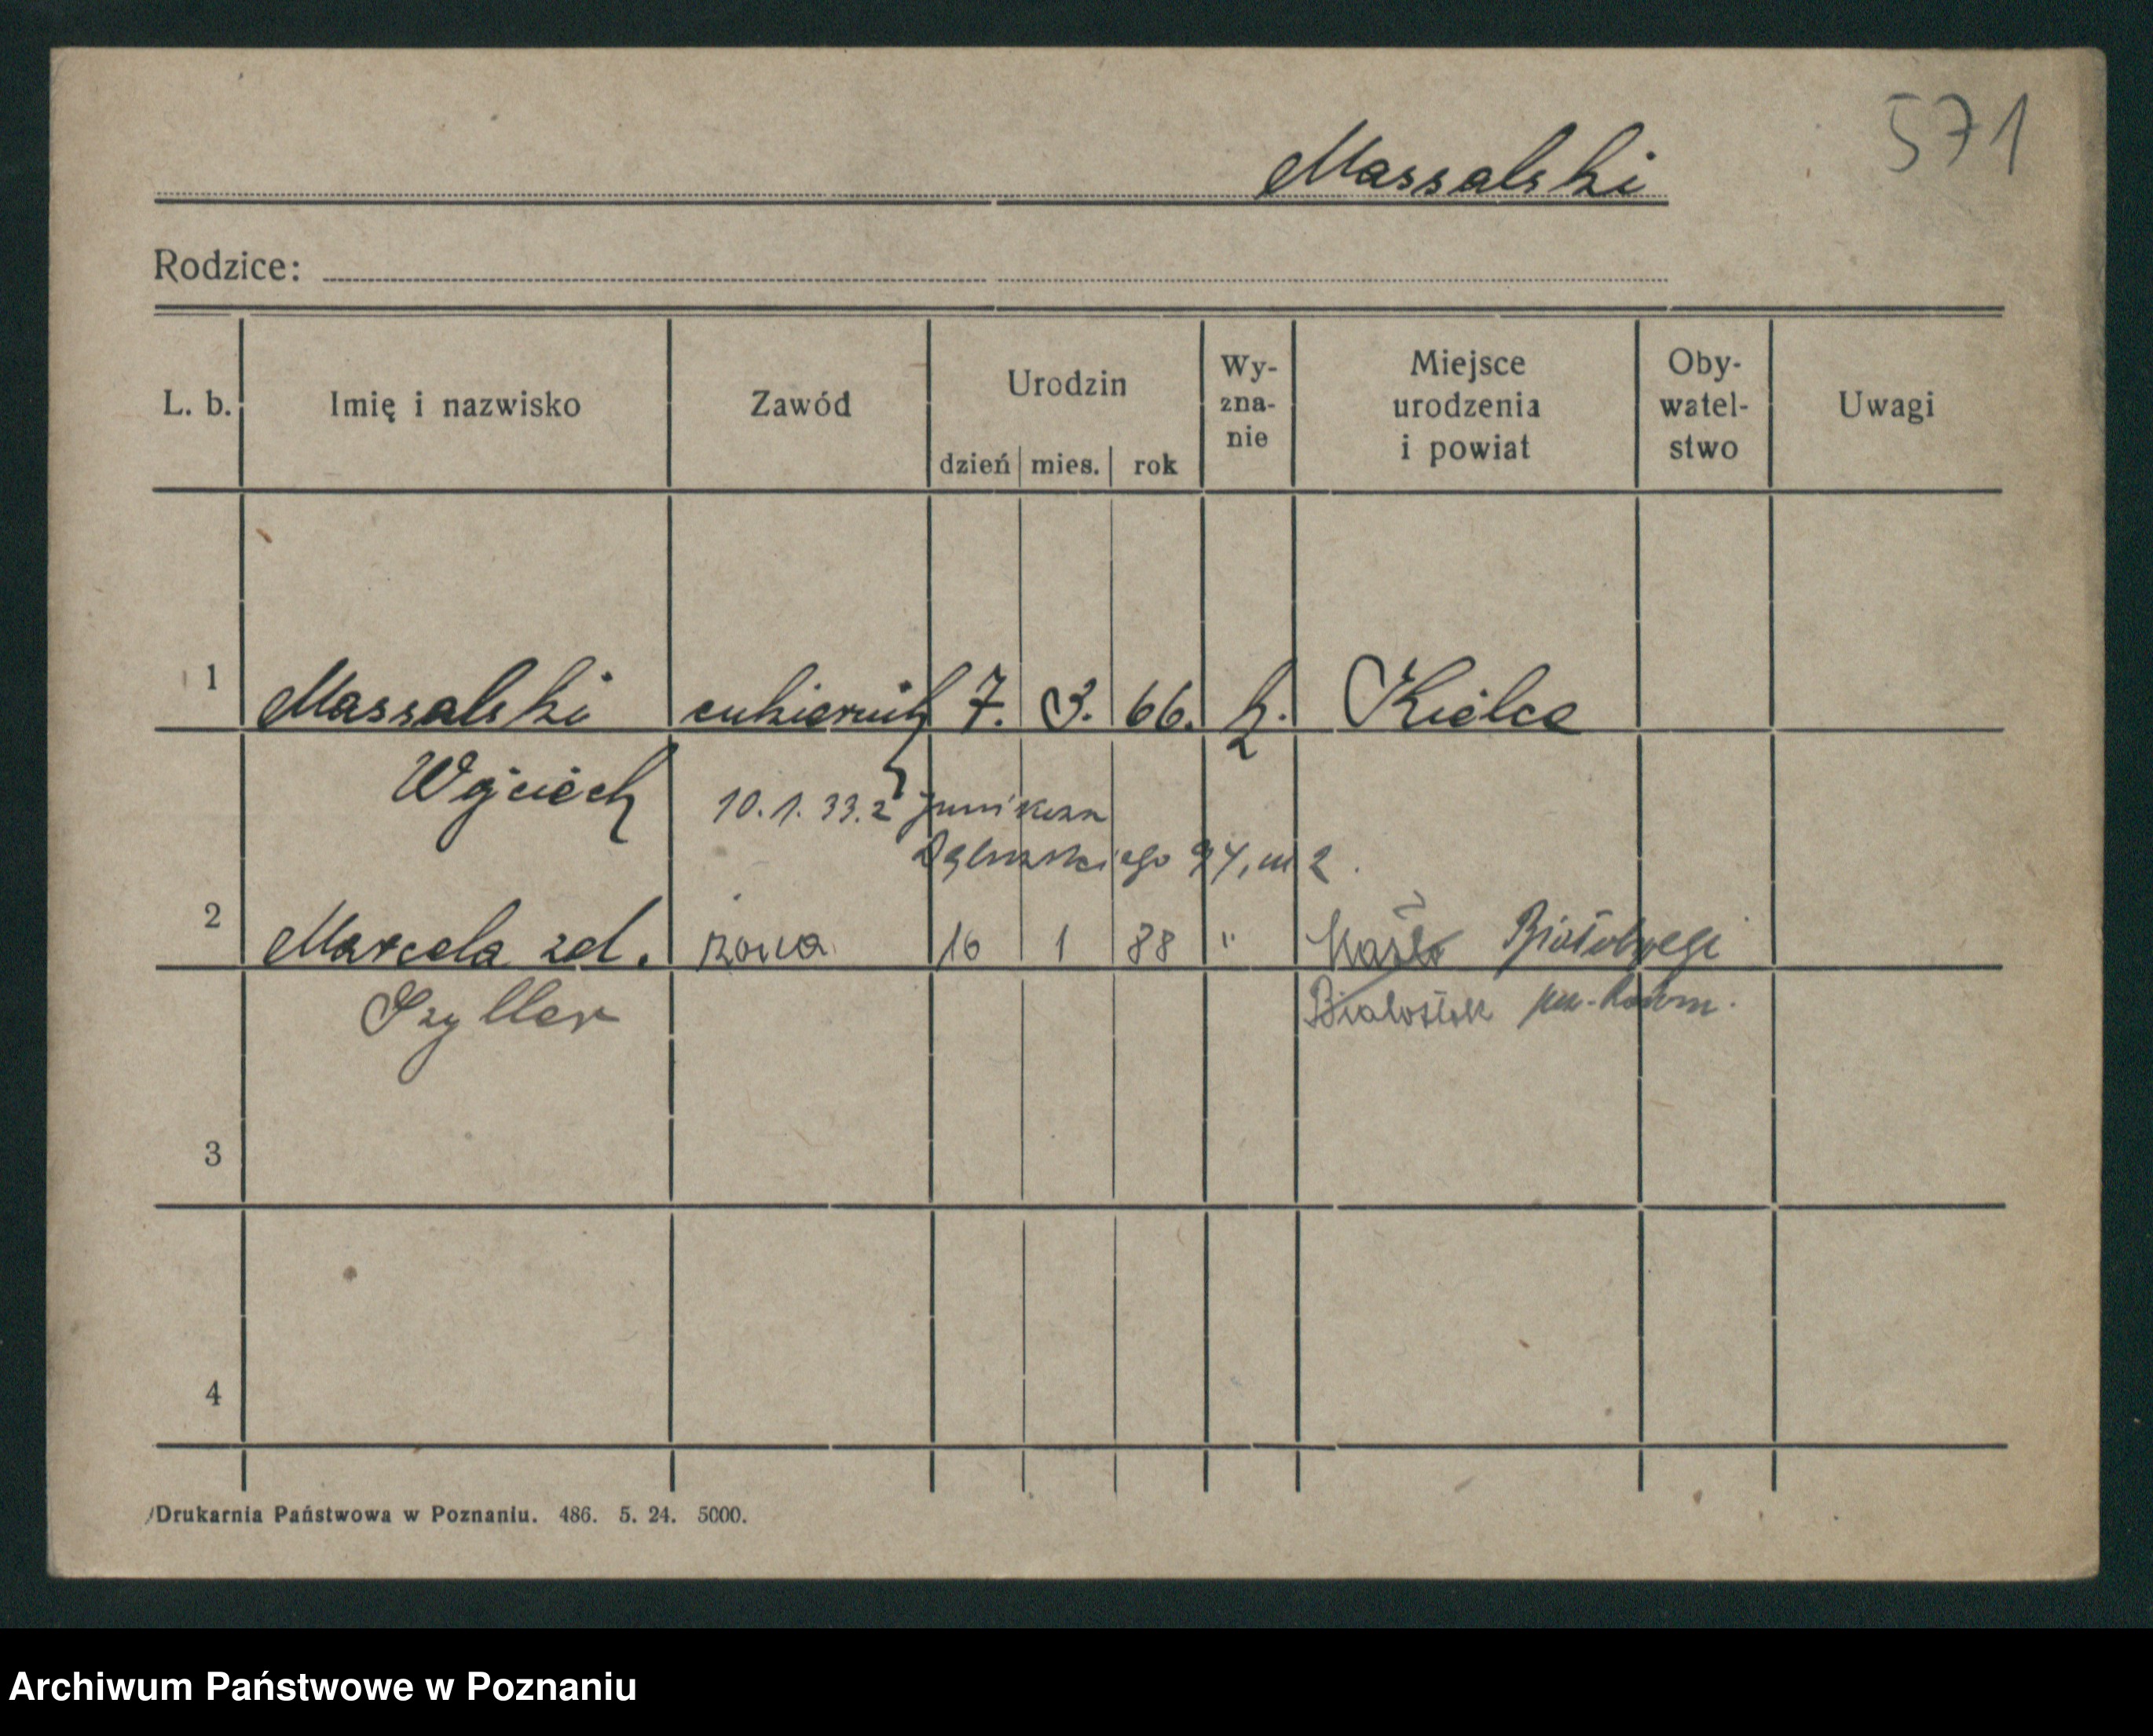 571
Massalski
Rodzice:
L. b. Imię i nazwisko Zawód Urodzin dzień mies. rok Wy-zna-nie Miejsce urodzenia i powiat Oby-watel-stwo Uwagi
1 Massalski cukiernik 7. 3. 66. k. Kielce
Wojciech
10.1.33. z Junikowa
94, m 2.
2 Marcela zd. żona 16 1 88 " Białobrzegi
Szyller Białostok pow. Radom.
3
4
Drukarnia Państwowa w Poznaniu. 486. 5. 24. 5000.
Archiwum Państwowe w Poznaniu